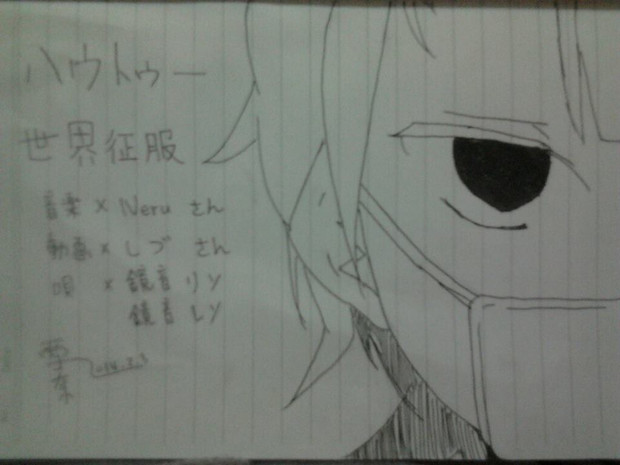 ハウトゥー
世界征服
音楽 × Neru さん
動画 × しづ さん
唄 × 鏡音 リン
鏡音 レン
2014.2.3